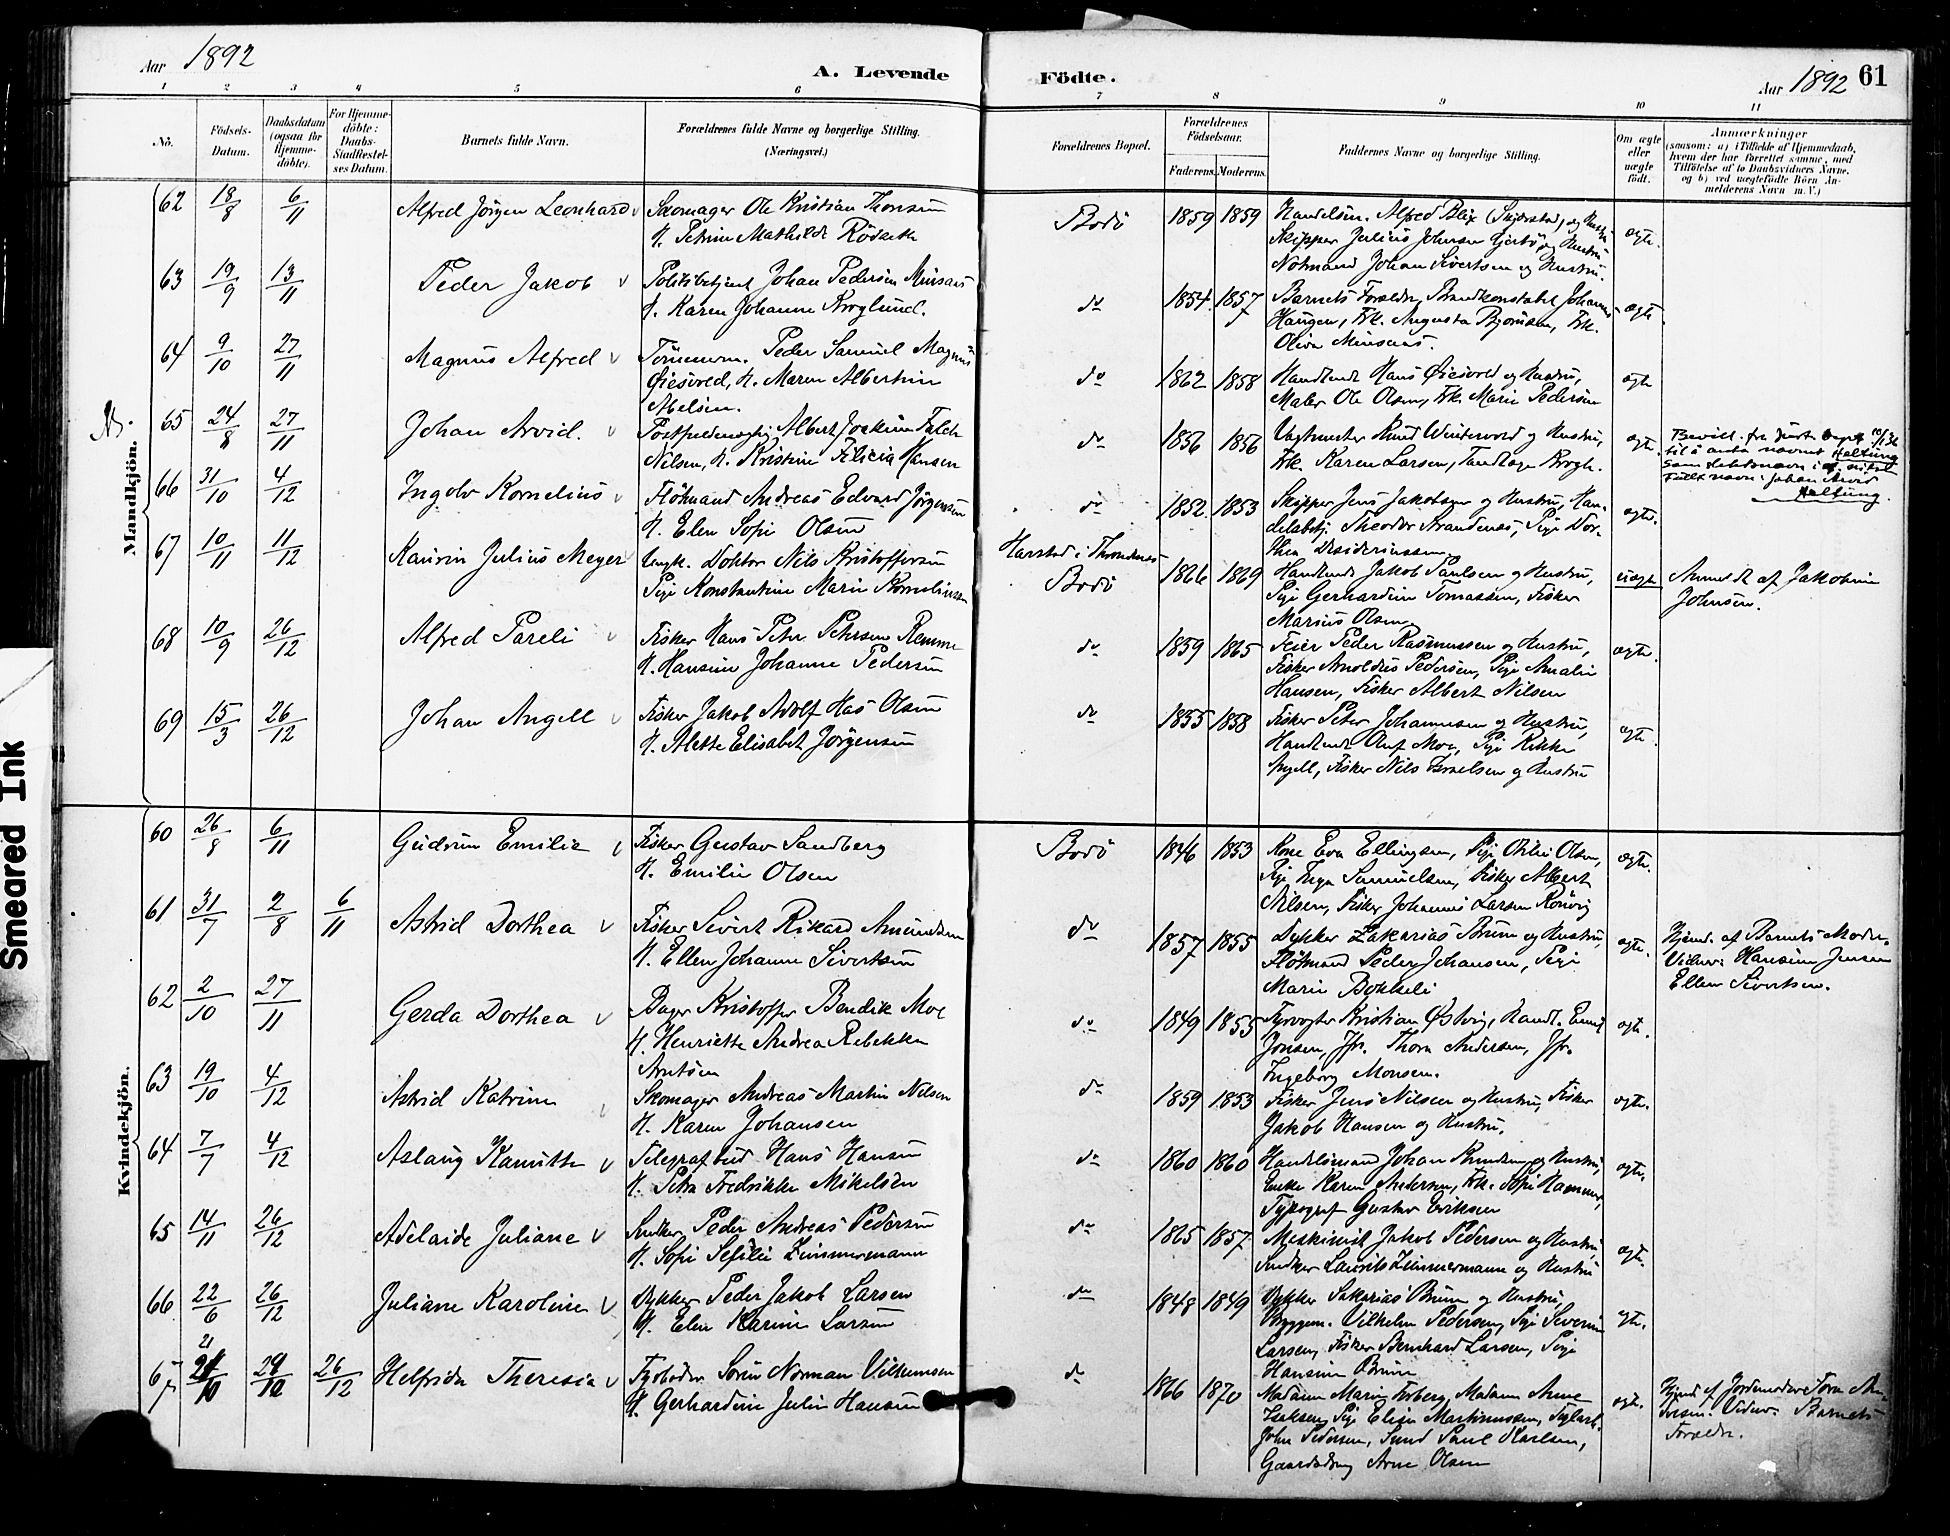 Aar 1892
A. Levende
Födte.
Aar 1892 61
1 2 3 4 5 6 7 8 9 10 11
No.
Födsels-Datum.
Daabsdatum (ogsaa för Hjemme-döbte).
For Hjemme-döbte: Daabs-Stadfæstel-ses Datum.
Barnets fulde Navn.
Forældrenes fulde Navne og borgerlige Stilling.
(Næringsvei.)
Forældrenes Bopæl.
Forældrenes Födselsaar.
Faderens. Moderens.
Faddernes Navne og borgerlige Stilling.
Om ægte eller uægte födt.
Anmærkninger
(saasom: a) i Tilfælde af Hjemmedaab,
hvem der har forrettet samme, med
Tilföielse af to Daabsvidners Navne,
og b) ved uægtefödte Börn An-
melderens Navn m. V.)
Mandkjön.
62 18/8 6/11 Alfred Jörgen Leonhard Skomager Ole Kristian Thorsen
H. Petrine Mathilde Rödseth
Bodö 1859 1859 Handelsm. Alfred Blix (Skjerstad) og Hustr.
Skipper Julius Johnsen Gjertö og Hustru
Notmand Johan Sivertsen og Hustru.
ægte.
63 19/9 13/11 Peder Jakob Politibetjent Johan Pedersen Minsaas
H. Karen Johanne Kroglund.
do 1854 1857 Barnets Forældre, Brandkonstabel Johannes
Haugen, Frk. Augusta Bjornsen, Frk.
Oliva Minsaas.
ægte
64 9/10 27/11 Magnus Alfred Tömmerm. Peder Samuel Magnus
Öiesvold, H. Maren Albertine
Abelsen.
do 1862 1858 Handlende Hans Öiesvold og Hustru,
Maler Ole Olsen, Frk. Marie Pedersen
ægte
65 24/8 27/11 Johan Arvid. Postfuldmægtig Albert Joakim Falch
Nilsen, H. Kristine Felicia Hansen
do 1856 1856 Vagtmester Knud Wintervold og Hustru,
Frk. Karen Larsen, Tandlæge Krogh.
ægte.
Bevill. fra Just. Dept
til å anta navnet Heltung
som slektsnavn
Fullt navn: Johan Arvid
Heltung.
66 31/10 4/12 Ingolv Kornelius Flötmand Andreas Edvard Jörgensen
H. Elen Sofie Olsen
do 1852. 1853 Skipper Jens Jakobsen og Hustru, Han-
delsbetj. Theodor Strandenæs, Pige Dor-
thea Desideriussen
ægte.
67 10/11 11/12 Kaurin Julius Meyer Ungk. Doktor Nils Kristoffersen
Pige Konstantine Marie Korneliussen
Harstad i Throndenæs
Bodö 1866 1869 Handlende Jakob Paulsen og Hustru,
Pige Gerhardine Tomassen, Fisker
Marius Olsen
uægte
Anmeldt af Jakobine
Johnsen.
68 10/9 26/12 Alfred Pareli Fisker Hans Peter Petersen Remme
H. Hansine Johanne Pedersen
do 1859 1865 Feier Peder Rasmussen og Hustru,
Fisker Arnoldus Pedersen, Pige Amalie
Hansen, Fisker Albert Nilsen
ægte.
69 15/3 26/12 Johan Angell Fisker Jakob Adolf Has Olsen
H. Alette Elisabet Jörgensen
do 1855 1858 Fisker Peter Johannesen og Hustru,
Handlende Oluf Moe, Pige Rikke
Angell, Fisker Nils Israelsen og Hustru
ægte.
Kvindekjön.
60 26/8 6/11 Gudrun Emilie Fisker Gustav Sandberg
H. Emilie Olsen
Bodö 1846 1853 Kone Eva Ellingsen, Pige Otilie Olsen,
Pige Inga Samuelsen, Fisker Albert
Nilsen, Fisker Johannes Larsen Rönvig
ægte.
61 31/7 2/8 6/11 Astrid Dorthea Fisker Sivert Rikard Amundsen
H. Ellen Johanne Sivertsen
do 1857 1855 Dykker Zakarias Bruun og Hustru,
Flötmand Peder Johansen, Pige
Marie Bokkeli
ægte.
Hjemd. af Barnets Moder.
Vidner: Hansine Jensen
Ellen Sivertsen.
62 2/10 27/11 Gerda Dorthea Bager Kristoffer Bendik Moe
H. Henriette Andrea Rebekka
Arntsen
do 1849 1855 Fyrvogter Kristian Östvig, Handl. Emil
Jonsen, Jfr. Thora Andersen, Jfr.
Ingeborg Monsen.
ægte.
63 19/10 4/12 Astrid Katrine Skomager Andreas Martin Nilsen
H. Karen Johansen
do 1859 1853 Fisker Jens Nilsen og Hustru, Fisker
Jakob Hansen og Hustru.
ægte.
64 7/7 4/12 Aslaug Kamitta Telegrafbud Hans Hansen
H. Petra Fredrikke Mikelsen
do 1860 1860 Handelsmand Johan Knudsen og Hustru,
Enke Karen Andersen, Frk. Sofie Hammer,
Typograf Gustav Eriksen
ægte.
65 14/11 26/12 Adelaide Juliane Snekker Peder Andreas Pedersen
H. Sofie Sefilie Zimmermann
do 1865 1857 Maskinist Jakob Pedersen og Hustru,
Snedker Laurits Zimmermann og Hustru
ægte.
66 22/6 26/12 Juliane Karoline Dykker Peder Jakob Larsen
H. Elen Karine Larsen
do 1848 1849 Dykker Sakarias Bruun og Hustru,
Byggem. Vilhelm Pedersen, Pige Severine
Larsen, Fisker Bernhard Larsen, Pige
Hansine Bruun
ægte.
67 21/10 29/10 26/12 Helfrida Theresia Fyrböder Sören Norman Vilhemsen
H. Gerhardine Julie Hansen
do 1866 1870 Madam Marie Forberg, Madam Anne
Isaksen, Pige Elise Martinussen,
John Pedersen, Smed Paul Karlsen,
Gaardsdreng Arne Olsen
ægte.
Hjemd. af Jordemoder Tora An-
dresen. Vidner: Barnets
Forældre.
Smeared Ink